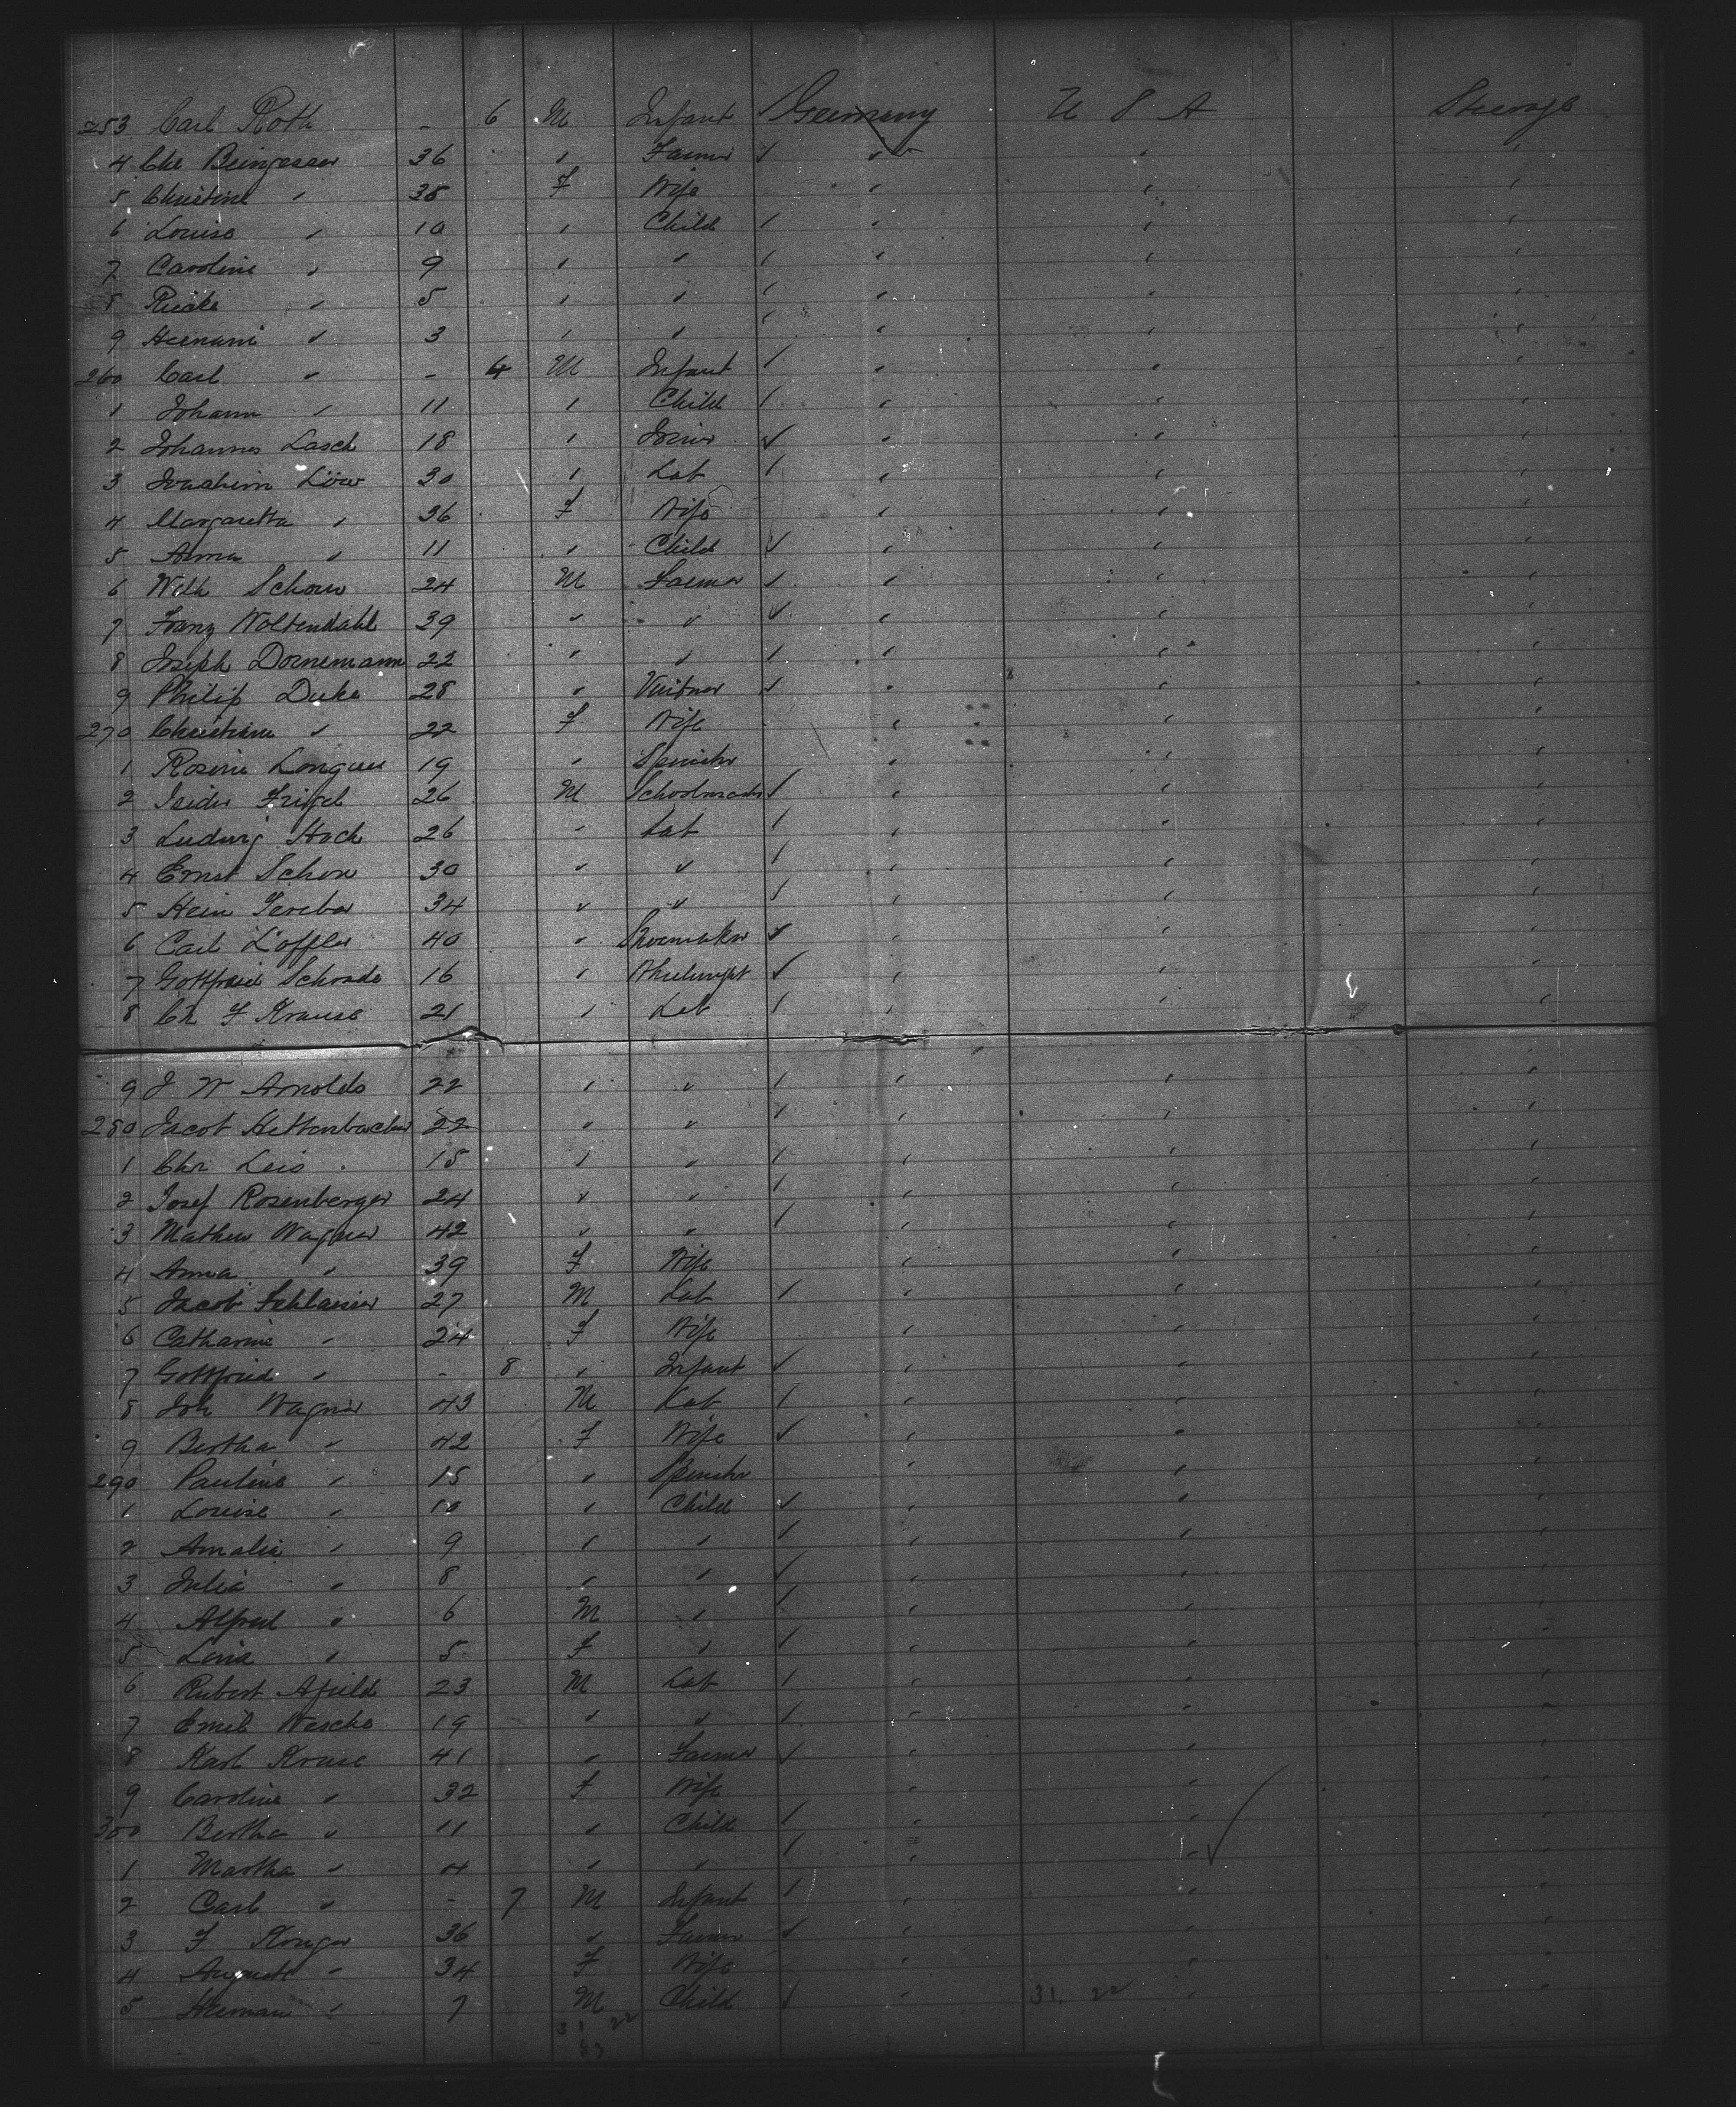 253 Carl Roth - 6 M Infant Germany U S A Steerage
4 Chr 36 " Farmer " " "
5 Christine " 38 F Wife " " "
6 Louise " 10 " Child " " "
7 Caroline " 9 " " " " "
8 " 5 " " " " "
9 " 3 " " " " "
260 Carl " - 4 M Infant " " "
1 Johann " 11 " Child " " "
2 Johannes Lasch 18 " " " "
3 Joachim Löw 30 " Lab " " "
4 Margaretta " 36 F Wife " " "
5 Anna " 11 " Child " " "
6 Wilh 24 M Farmer " " "
7 Franz Woltendahl 39 " " " " "
8 Joseph Dornemann 22 " " " " "
9 Philip Duke 28 " " " "
270 Christiane " 22 F Wife " " "
1 Rosine 19 " Spinster " " "
2 Isidor 26 M Schoolmaster " " "
3 Ludwig Hock 26 " Lab " " "
4 Ernst 30 " " " " "
5 Hein 34 " " " " "
6 Carl Löffler 40 " Shoemaker " " "
7 Gottfried Schrade 16 " Wheelwright " " "
8 Ch F Krause 21 " Lab " " "
9 J W Arnolds 22 " " " " "
280 Jacob Hettenbacher 22 " " " "
1 Chr Leis 15 " " " " "
2 Josef Rosenberger 24 " " " " "
3 Mathew Wagner 42 " " " " "
4 Anna " 39 F Wife " " "
5 Jacob 27 M Lab " "
6 Catharine " 24 F Wife " " "
7 Gottfried " - 8 " Infant " " "
8 Joh Wagner 43 M Lab " " "
9 Bertha " 42 F Wife " " "
290 Pauline " 15 " Spinster " " "
1 Louise " 10 " Child " " "
2 Amalie " 9 " " " " "
3 Julia " 8 " " " " "
4 Alfred " 6 M " " " "
5 " 5 F " " " "
6 23 M Lab " " "
7 Emil Wesche 19 " " " " "
8 Karl Kruse 41 " Farmer " " "
9 Caroline " 32 F Wife " " "
300 Bertha " 11 " Child " " "
1 Martha " 4 " " " " "
2 Carl " - 7 M Infant " " "
3 F Kruger 36 " Farmer " " "
4 Auguste " 34 F Wife " " "
5 Herman " 7 M Child " 31. 22 " "
31 22